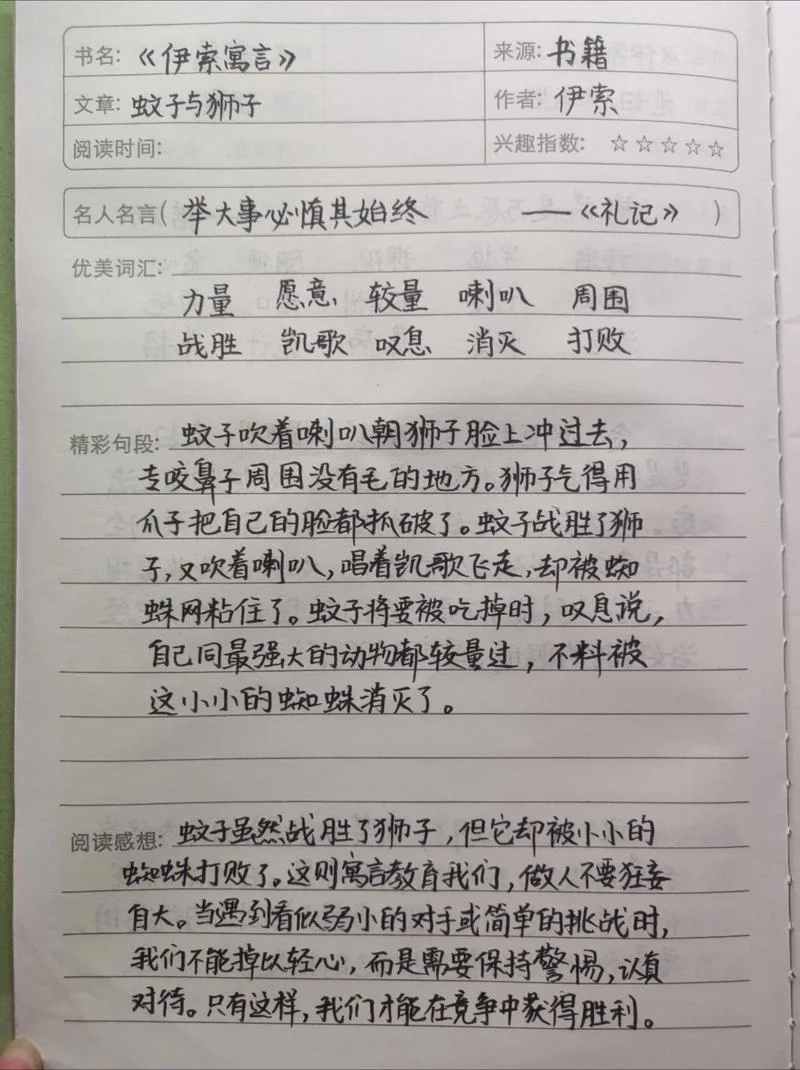 书名:《伊索寓言》 来源:书籍
文章:蚊子与狮子 作者:伊索
阅读时间: 兴趣指数:☆☆☆☆☆
名人名言(举大事必慎其始终 ——《礼记》)
优美词汇:
力量 愿意 较量 喇叭 周围
战胜 凯歌 叹息 消灭 打败
精彩句段:蚊子吹着喇叭朝狮子脸上冲过去,
专咬鼻子周围没有毛的地方。狮子气得用
爪子把自己的脸都抓破了。蚊子战胜了狮
子,又吹着喇叭,唱着凯歌飞走,却被蜘
蛛网粘住了。蚊子将要被吃掉时,叹息说,
自己同最强大的动物都较量过,不料被
这小小的蜘蛛消灭了。
阅读感想:蚊子虽然战胜了狮子,但它却被小小的
蜘蛛打败了。这则寓言教育我们,做人不要狂妄
自大。当遇到看似弱小的对手或简单的挑战时,
我们不能掉以轻心,而是需要保持警惕,认真
对待。只有这样,我们才能在竞争中获得胜利。